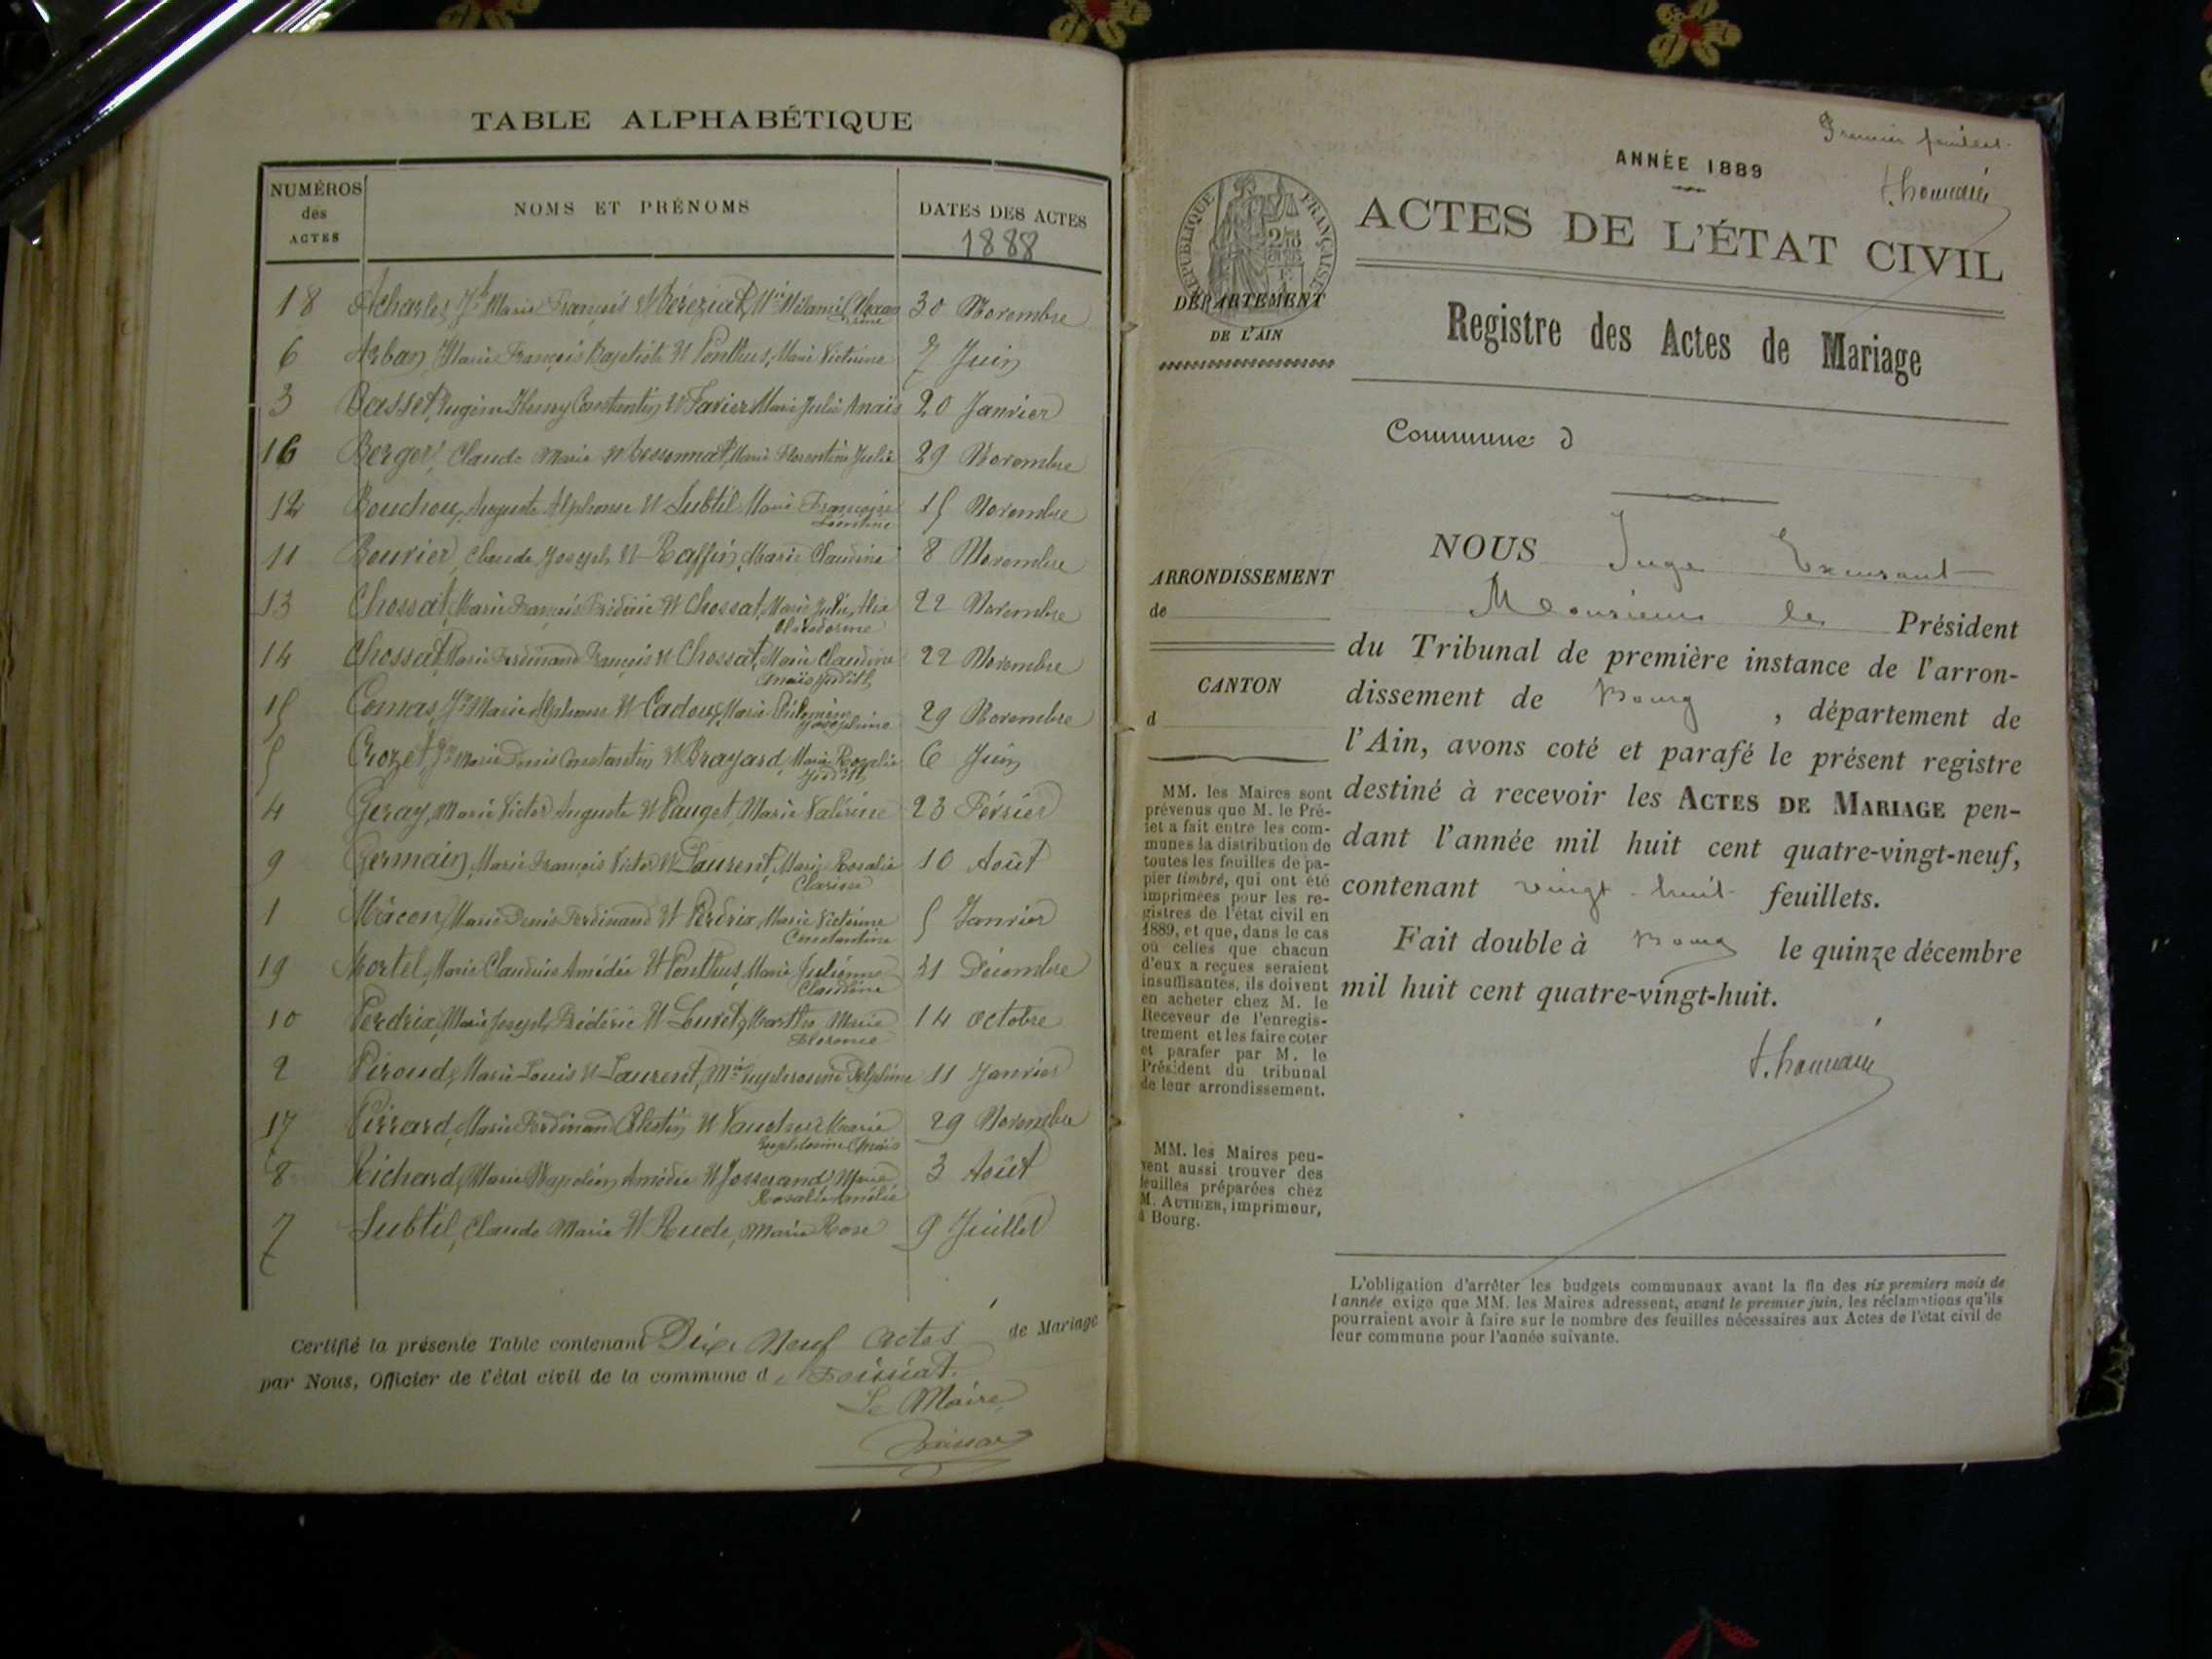 TABLE ALPHABÉTIQUE
NUMÉROS des ACTES
NOMS ET PRÉNOMS
DATES DES ACTES
1888
18 Acharles, Jh Marie François et Béréziat, Mie Mélanie 30 Novembre
6 Arban, Marie François Baptiste et Ponthus, Marie Victorine 7 Juin
3 Basset, Eugène Henry Constantin et Favier Marie Julie Anaïs 20 Janvier
16 Berger, Claude Marie et Bessonnat, Marie Florentine Julie 29 Novembre
12 Bouchoux, Auguste Alphonse et Subtil Marie Françoise Léontine 15 Novembre
11 Bouvier, Claude Joseph et Raffin, Marie Claudine 8 Novembre
13 Chossat, Marie François Frédéric et Chossat, Marie Julie Alix 22 Novembre
14 Chossat, Marie Ferdinand François et Chossat, Marie Claudine Anaïs Judith 22 Novembre
15 Comas, Jh Marie Alphonse et Cadoux, Marie Philomène Joséphine 29 Novembre
5 Crozet, Marie Denis Constantin et Brayard, Marie Rosalie Judith 6 Juin
4 Geray, Marie Victor Auguste et Pauget, Marie Valérine 23 Février
9 Germain, Marie François Victor et Laurent, Marie Rosalie Clarisse 10 Août
1 Mâcon, Marie Denis Ferdinand et Perdrix, Marie Victorine Constantine 5 Janvier
19 Mortel, Marie Claudius Amédée et Ponthus, Marie Julienne Claudine 31 Décembre
10 Perdrix, Marie Joseph Frédéric et Louvet, Marthe Marie Florence 14 Octobre
2 Piroud, Marie Louis et Laurent, Mie Euphrosine Delphine 11 Janvier
17 Pirrard, Marie Ferdinand Célestin et Marie Euphrosine Anaïs 29 Novembre
8 Richard, Marie Napoléon Amédée et Josserand, Marie Rosalie Amélie 3 Août
7 Subtil, Claude Marie et Rude, Marie Rose 9 Juillet
Certifié la présente Table contenant Dix Neuf Actes de Mariage
par Nous, Officier de l'état civil de la commune de Foissiat.
Le Maire
Premier feuillet.
ANNÉE 1889
ACTES DE L'ÉTAT CIVIL
RÉPUBLIQUE FRANÇAISE
DÉPARTEMENT
DE L'AIN
Registre des Actes de Mariage
Commune d
ARRONDISSEMENT
de
CANTON
d
NOUS Juge Exerçant
Monsieur le Président
du Tribunal de première instance de l'arron-
dissement de Bourg , département de
l'Ain, avons coté et parafé le présent registre
destiné à recevoir les ACTES DE MARIAGE pen-
dant l'année mil huit cent quatre-vingt-neuf,
contenant vingt-huit feuillets.
Fait double à Bourg le quinze décembre
mil huit cent quatre-vingt-huit.
MM. les Maires sont
prévenus que M. le Pré-
fet a fait entre les com-
munes la distribution de
toutes les feuilles de pa-
pier timbré, qui ont été
imprimées pour les re-
gistres de l'état civil en
1889, et que, dans le cas
où celles que chacun
d'eux a reçues seraient
insuffisantes, ils doivent
en acheter chez M. le
Receveur de l'enregis-
trement et les faire coter
et parafer par M. le
Président du tribunal
de leur arrondissement.
MM. les Maires peu-
vent aussi trouver des
feuilles préparées chez
M. AUTHIER, imprimeur,
à Bourg.
L'obligation d'arrêter les budgets communaux avant la fin des six premiers mois de
l'année exige que MM. les Maires adressent, avant le premier juin, les réclamations qu'ils
pourraient avoir à faire sur le nombre des feuilles nécessaires aux Actes de l'état civil de
leur commune pour l'année suivante.